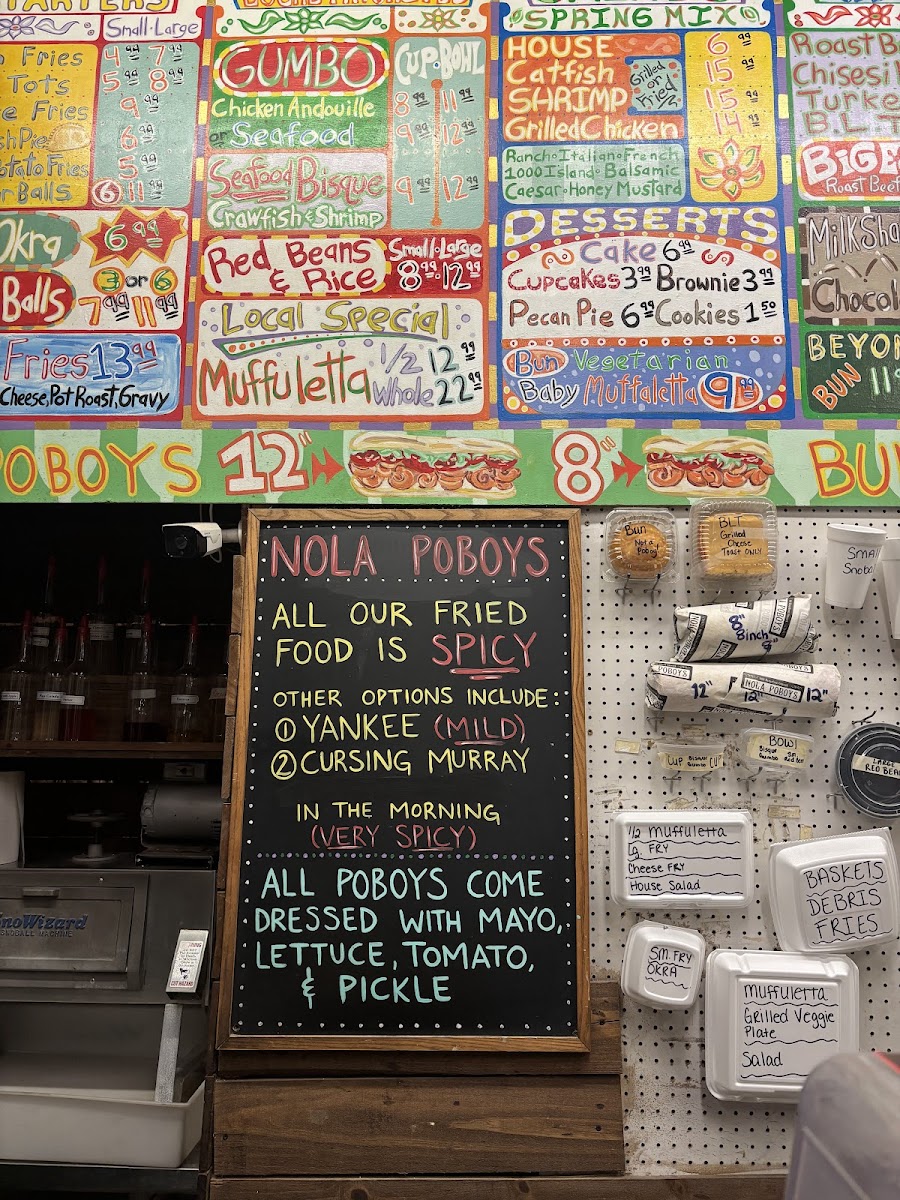 Small·Large
Fries 4 99 7 99
Tots 5 99 8 99
Fries 9 99
Pie 6 99
Fries 5 99
Balls 6 11 99
Okra 6 99
Balls 3 or 6
7 99 11 99
Fries 13 99
Cheese, Pot Roast, Gravy
GUMBO CUP·BOWL
Chicken Andouille 8 99 11 99
or Seafood 9 99 12 99
Seafood Bisque 9 99 12 99
Crawfish & Shrimp
Red Beans & Rice Small·Large
8 99 12 99
Local Special
Muffuletta 1/2 12 99
Whole 22 99
SPRING MIX
HOUSE 6 99
Catfish Grilled or Fried? 15 99
SHRIMP 15 99
Grilled Chicken 14 99
Ranch·Italian·French
1000 Island·Balsamic
Caesar·Honey Mustard
DESSERTS
Cake 6 99
Cupcakes 3 99 Brownie 3 99
Pecan Pie 6 99 Cookies 1 50
Bun Vegetarian
Baby Muffaletta 9
Roast B
Chisesi
Turke
B.L.T
Roast Beef
MilkSha
Chocol
BEYON
BUN 11
POBOYS 12" 8" BU
NOLA POBOYS
ALL OUR FRIED
FOOD IS SPICY
OTHER OPTIONS INCLUDE:
① YANKEE (MILD)
② CURSING MURRAY
IN THE MORNING
(VERY SPICY)
ALL POBOYS COME
DRESSED WITH MAYO,
LETTUCE, TOMATO,
& PICKLE
Bun
Not a
Poboy
BLT
Grilled
Cheese
Toast ONLY
Small
Snobal
8"
8inch
12" NOLA POBOYS 12"
12"
CUP
BOWl
LARGE
RED BEA
1/2 muffuletta
Lg. FRY
Cheese FRY
House Salad
BASKETS
DEBRIS
FRIES
Sm. FRY
OKRA
muffuletta
Grilled Veggie
Plate
Salad
noWizard
SNOBALL MACHINE